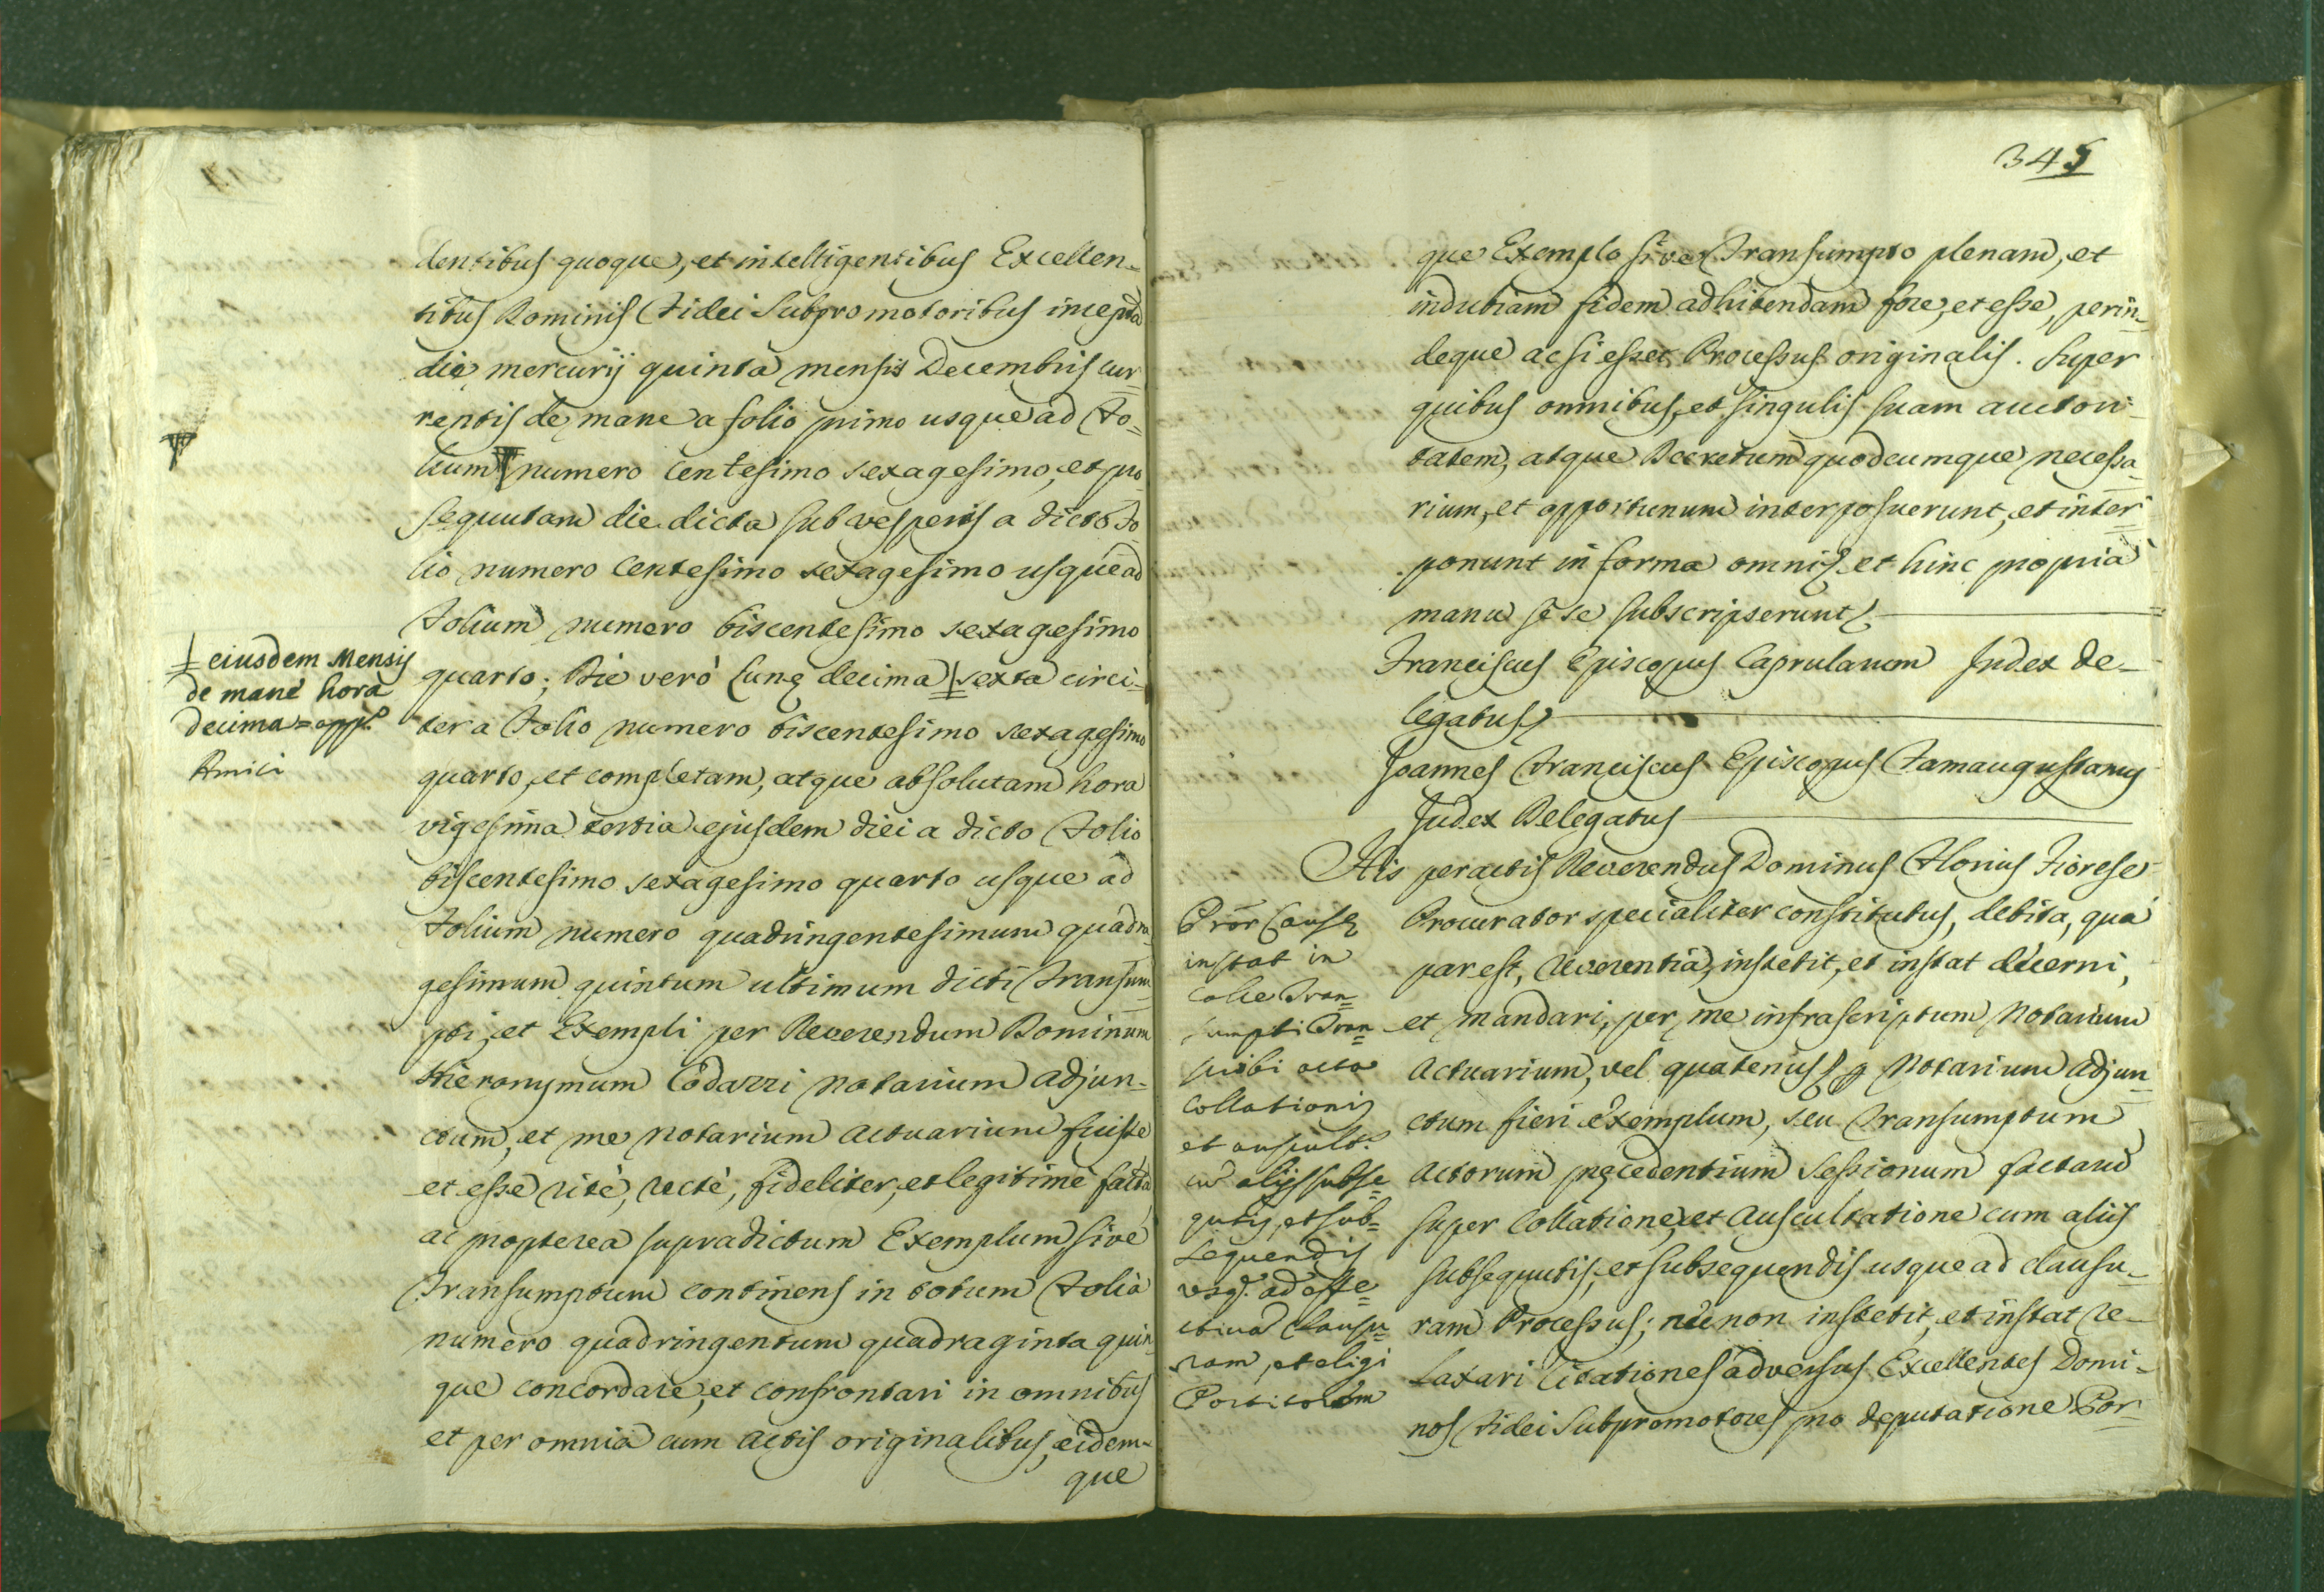 dentibus quoque, et intelligentibus Excellen-
tibus Dominis Fidei Subpromotoribus incepta
die mercurij quinta mensis Decembris cur
rentis de mane a folio primo usque ad Fo=
lium numero centesimo sexagesimo, et pro
sequutam die dicta sub vesperis a dicto Fo
lio numero Centesimo sexagesimo usque ad
Folium numero biscentesimo sexagesimo
quarto; Die verò Lunę decima sexta circi-
ter a Folio numero biscentesimo sexagesimo
quarto, et completam, atque absolutam hora
vigesima tertia ejusdem diei a dicto Folio
biscentesimo sexagesimo quarto usque ad
Folium numero quadringentesimum quadra
gesimum quintum ultimum dicti Transum
pti, et Exempli per Reverendum Dominum
Hieronymum Codazzi Notarium Adjun-
ctum, et me Notarium Actuarium fuisse
et esse ritè, rectè, fideliter, et legitimè facta
ac propterea supradictum Exemplum sive
Transumptum continens in totum Folia
numero quadringentum quadraginta quin
que concordare, et confrontari in omnibus
et per omnia cum Actis originalibus, eidem-
que
ejusdem Mensis
de manè hora
decima = appl.
Amici
345
que Exemplo sive Transumpto plenam, et
indubiam fidem adhibendam fore, et esse, perin=
deque ac si esset Processus originalis. Super
quibus omnibus, et singulis suam auctori-
tatem, atque Decretum quodcumque necessa
rium, et opportunum interposuerunt, et inter
ponunt in forma omni, et hinc propria
manu se se subscripserunt
Franciscus Episcopus Caprulanum Judex De-
legatus
Joannes Franciscus Episcopus Famaugustanus
Judex Delegatus
His peractis Reverendus Dominus Florius Fiorese
Procurator specialiter constitutus, debita, qua
par est, reverentia, institit, et instat decerni,
et mandari, per me infrascriptum Notarium
Actuarium, vel quatenus Notarium Adjun
ctum fieri Exemplum, seu Transumptum
Actorum pręcedentium Sessionum factarum
super Collatione, et Auscultatione cum aliis
subsequutis, et subsequendis usque ad clausu-
ram Processus; nec non institit, et instat re-
laxari Citationes adversus Excellentes Domi-
nos Fidei Subpromotores pro deputatione Por=
Prõr Causę
instat in
calce Tran=
sumpti Tran=
scribi acta
Collationis
et auscult.
cũ alijs subse=
qutis, et sub=
sequendis
usq. ad effe=
ctiva Clausu=
ram, et eligi
Portitorem